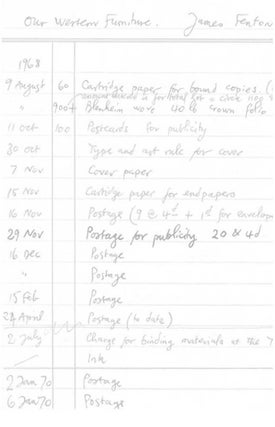 Our Western Furniture. James Fenton
1968
9 August 60 Cartridge paper for bound copies.
900+ Blenheim wove 40 lb crown folio
11 Oct 100 Postcards for publicity
30 Oct Type and art rule for cover
7 Nov Cover paper
15 Nov Cartridge paper for endpapers
16 Nov Postage (9 @ 4d + 1d for envelop
29 Nov Postage for publicity 20 @ 4d
16 Dec Postage
" Postage
15 Feb Postage
24 April Postage (to date)
2 July Charge for binding materials at the
Ink
2 Jan 70 Postage
6 Jan 70 Postage